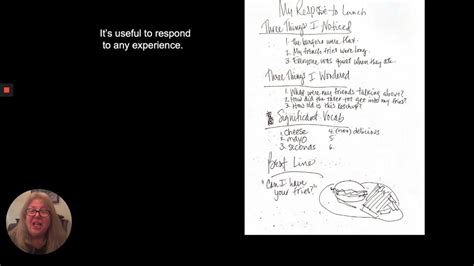 It's useful to respond
to any experience.
My Response to Lunch
Three Things I Noticed
1. The burgers were flat.
2. My french fries were long.
3. Everyone was quiet when they ate.
Three Things I Wondered
1. What were my friends talking about?
2. How did the tater tot get into my fries?
3. How old is this ketchup?
Significant Vocab
1. cheese 4. (non) delicious
2. mayo 5.
3. seconds 6.
Best Line
"Can I have
your fries?"